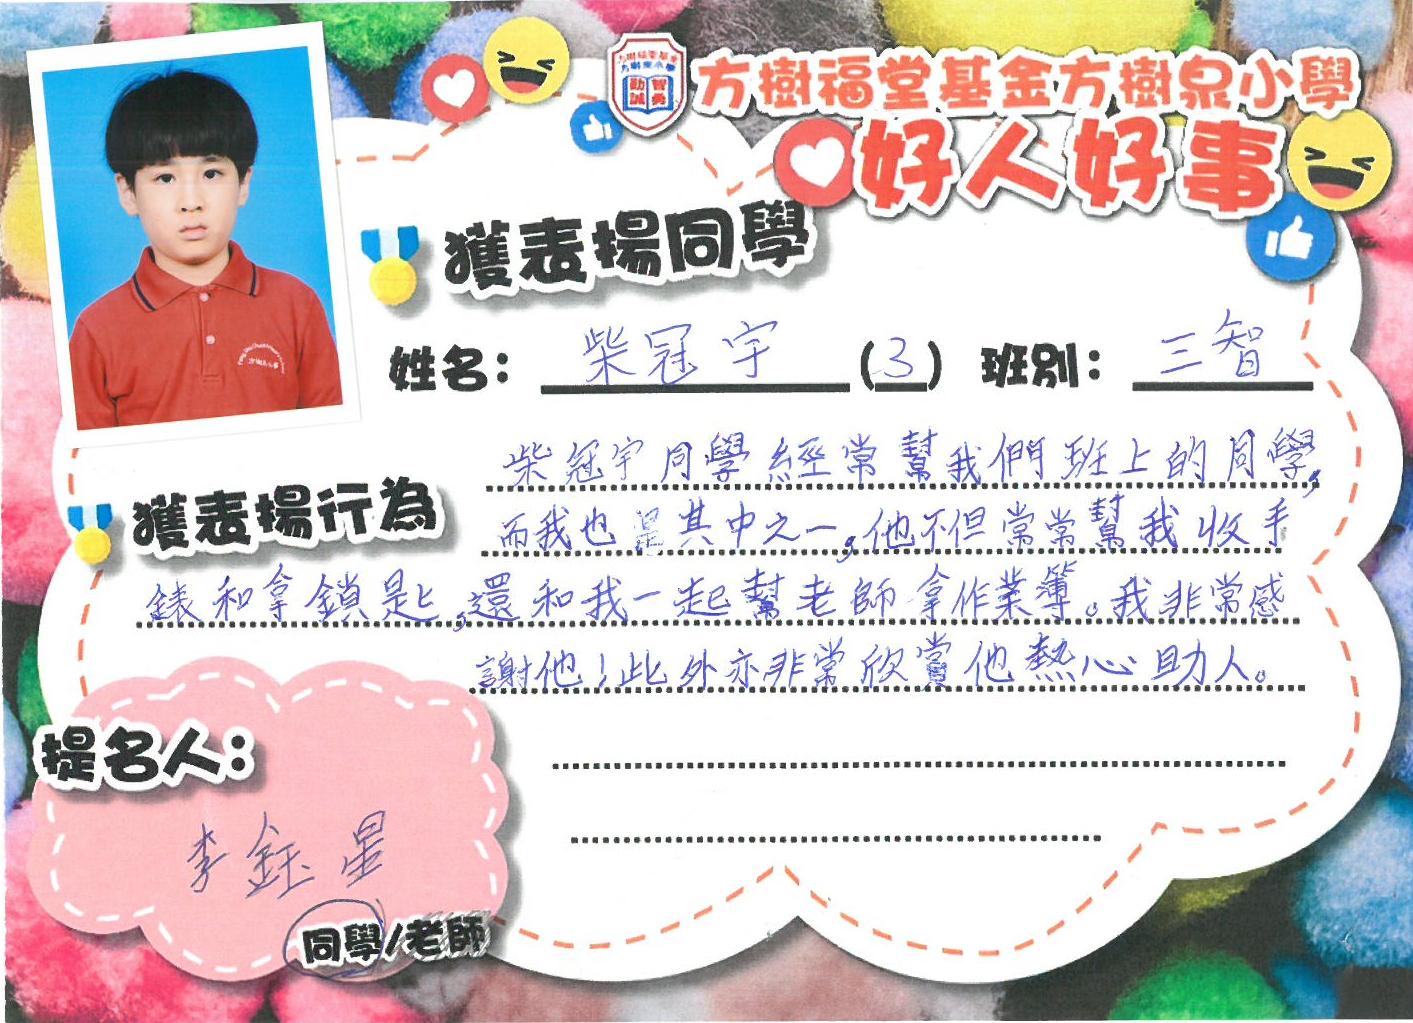 方樹福堂基金方樹泉小學
好人好事
獲表揚同學
姓名： 柴冠宇 (3) 班別： 三智
柴冠宇同學經常幫我們班上的同學,
獲表揚行為
而我也是其中之一,他不但常常幫我收手
錶和拿鎖匙,還和我一起幫老師拿作業簿。我非常感
謝他！此外亦非常欣賞他熱心助人。
提名人：
李鈺星
同學/老師